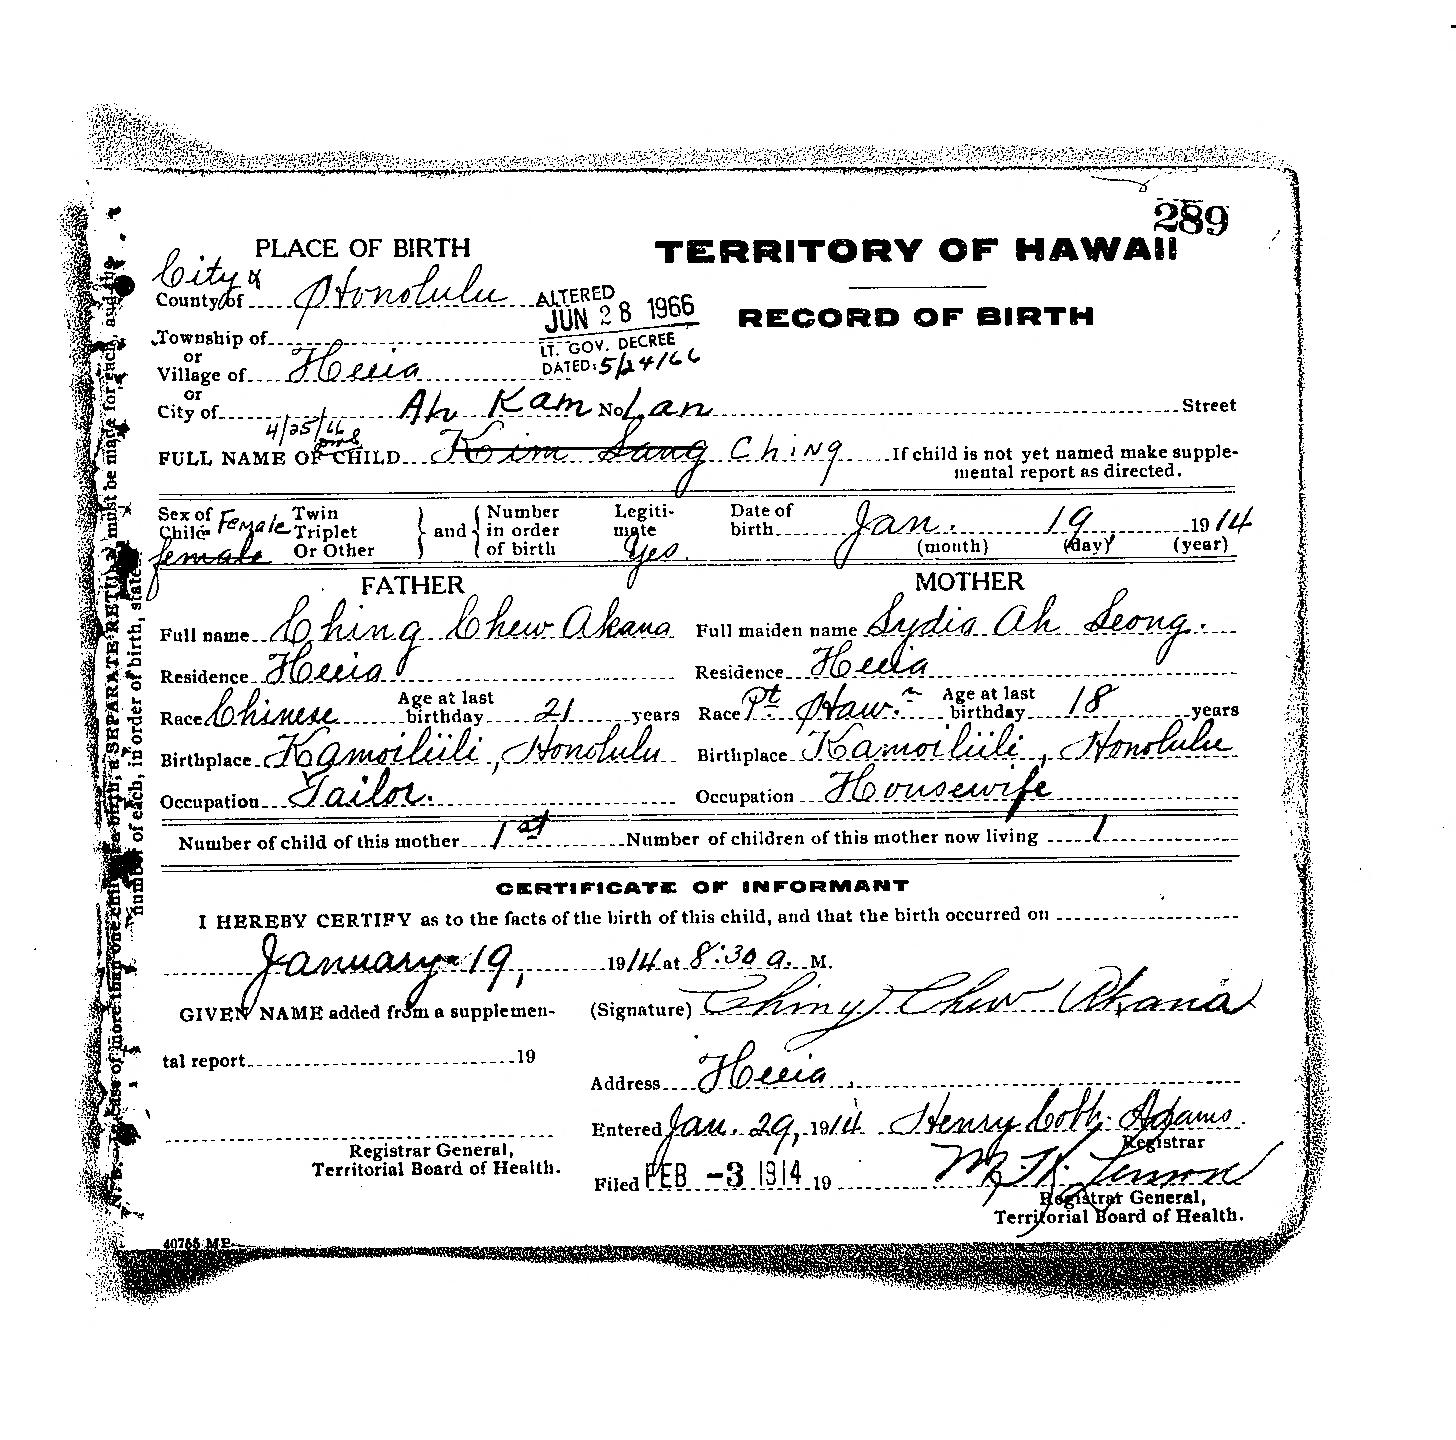 289
PLACE OF BIRTH
TERRITORY OF HAWAII
City &
County of Honolulu
ALTERED
JUN 28 1966
RECORD OF BIRTH
Township of
LT. GOV. DECREE
or
DATED: 5/24/66
Village of Heeia
or
City of No. Street
Ah Kam Lan
4/25/66
FULL NAME OF CHILD Kim Sang Ching If child is not yet named make supple-
mental report as directed.
Sex of Child Female female
Twin
Triplet
Or Other
and
Number
in order
of birth
Legiti-
mate
Yes.
Date of
birth Jan. 19 1914
(month) (day) (year)
FATHER MOTHER
Full name Ching Chew Akana Full maiden name Lydia Ah Leong.
Residence Heeia Residence Heeia
Race Chinese Age at last birthday 21 years Race Pt. Haw.n Age at last birthday 18 years
Birthplace Kamoiliili, Honolulu Birthplace Kamoiliili, Honolulu
Occupation Tailor. Occupation Housewife
Number of child of this mother 1st Number of children of this mother now living 1
CERTIFICATE OF INFORMANT
I HEREBY CERTIFY as to the facts of the birth of this child, and that the birth occurred on
January 19, 1914 at 8:30 a. M.
GIVEN NAME added from a supplemen- (Signature) Ching Chew Akana
tal report 19
Address Heeia
Entered Jan. 29, 1914 Henry Adams.
Registrar
Registrar General,
Territorial Board of Health.
Filed FEB -3 1914 19
Registrar General,
Territorial Board of Health.
40765 MP
case of more than one child a birth, a SEPARATE RETURN must be made for each, and the
number of each, in order of birth, state